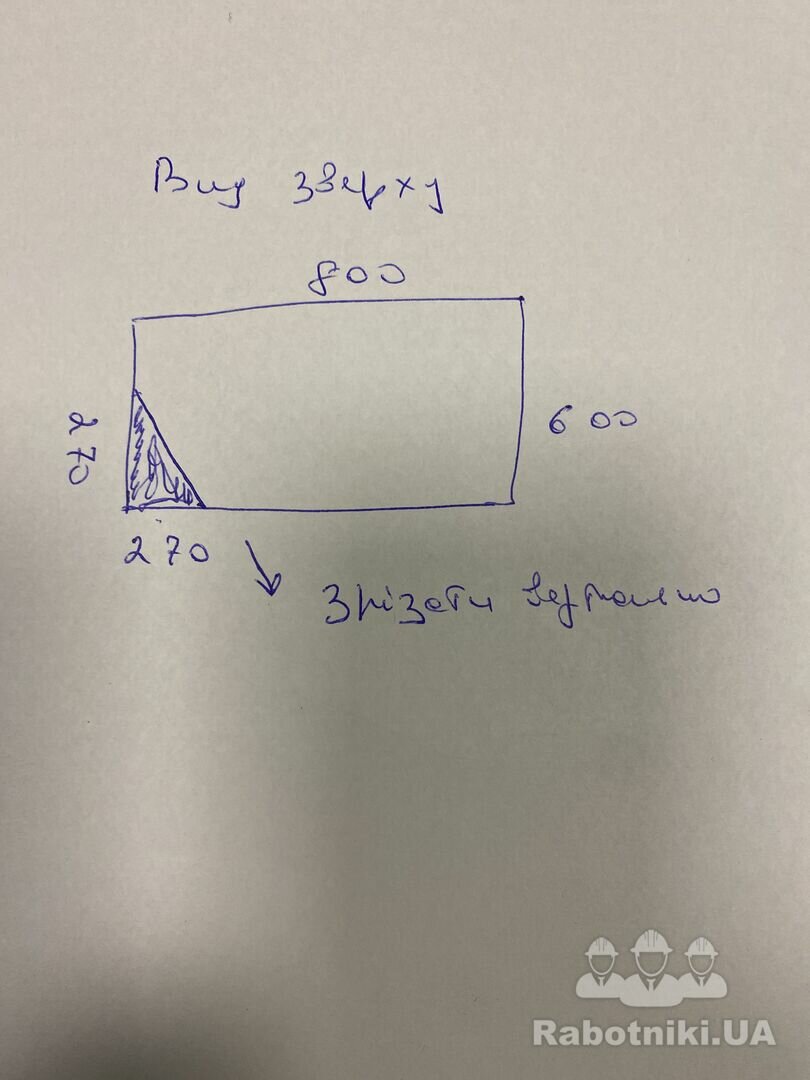 Вид зверху
800
270
600
270
Зрізати
Rabotniki.UA